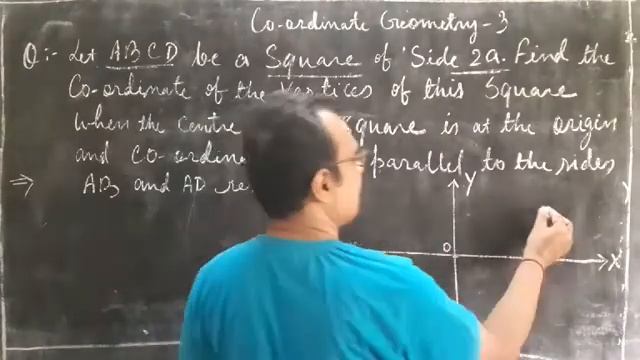 Co-ordinate Geometry-3
Q:- Let ABCD be a Square of Side 2a. Find the
Co-ordinate of the Vertices of this Square
When the centre square is at the origin
and co-ordina parallel to the sides
⇒ AB and AD re
Y
O
X